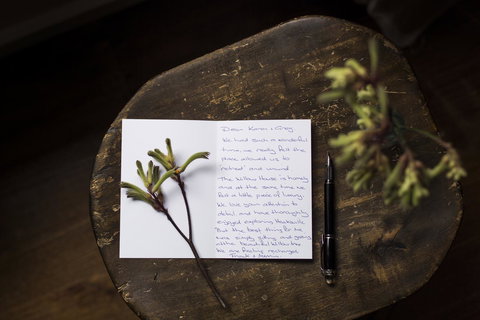 Dear Karen & Greg
We had such a wonderful
time, we really felt the
place allowed us to
retreat and unwind
The Willow House is homely
and at the same time we
felt a little piece of luxury.
We love your attention to
detail and have thoroughly
enjoyed exploring
But the best thing for me
was simply sitting and gazing
at the beautiful Willow tree
We are feeling recharged